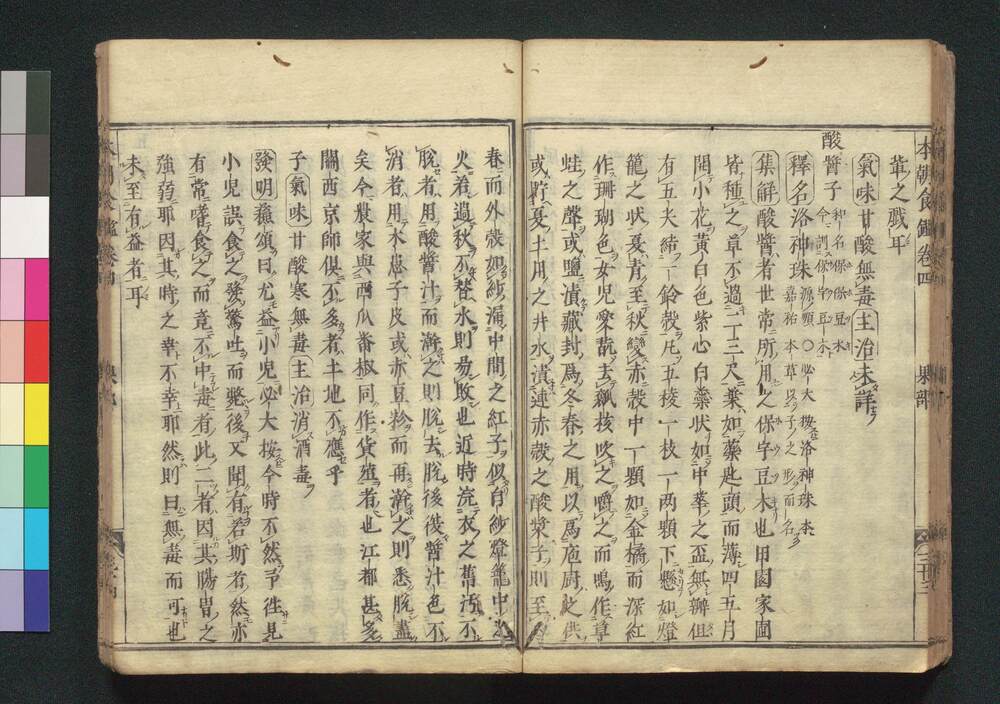 本朝食鑑卷四 果部
葦之戱耳
氣味甘酸無毒主治未詳
酸醬子
釋名洛神珠
集解酸醬者世常所用之保字豆木也田園家圃
皆種之草不過二三尺葉如藥匙頭而薄四五月
開小花黃白色紫心白蘂状如中華之盃無瓣但
有五尖結一鈴殼凡五稜一枝一兩顆下懸如燈
籠之状夏青至秋變赤殼中一顆如金橘而深紅
作珊瑚色女児愛翫去瓤核吹之嚼之而鳴作草
蛙之聲或鹽漬藏封爲冬春之用以爲庖厨之供
或貯夏土用之井水漬連赤殼之酸漿子則至
春而外殼如紗漏中間之紅子似白紗燈籠中之
火若過秋不替水則易敗也近時浣衣之舊汚不
脫者用酸醬汁而澣之則脫去脫後後醬汁色不
消者用木患子皮或赤豆粉而再澣之則悉脫盡
矣今農家與西瓜番椒同作貨殖者也江都甚多
關西京師倶不多者土地不應乎
子氣味甘酸寒無毒主治消酒毒
發明蘊頌曰尤益小児必大按今時不然予往見
小児誤食之發驚吐而斃後又聞有若斯者然亦
有常嗜食之而竟不中毒者此二者因其腸胃之
強弱耶因其時之幸不幸耶然則曰無毒而可也
未至有益者耳